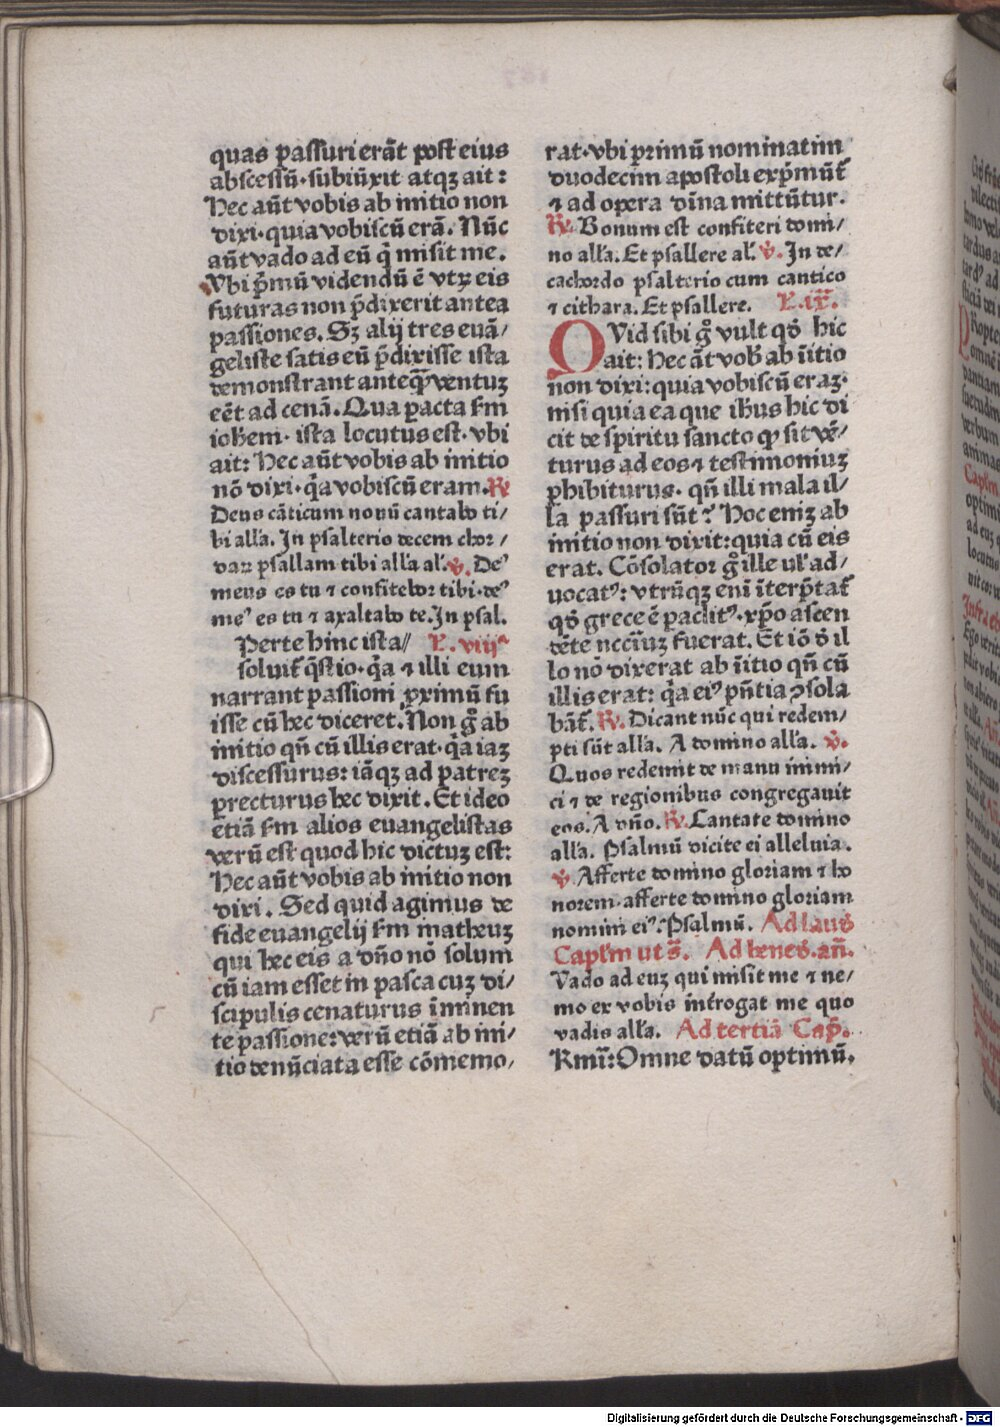 quas passuri erãt post eius
abscessũ·subiũxit atqꝫ ait:
Hec aũt vobis ab initio non
dixi·quia vobiscũ erã. Nũc
aũt vado ad eũ q̇ misit me.
Vbi pͥmũ videndũ ē vtꝝ eis
futuras non p̄dixerit antea
passiones. Sꝫ alij tres euã/
geliste satis eũ p̄dixisse ista
demonstrant anteꝙ̄ ventuꝫ
eēt ad cenã. Qua ꝑacta ẜm
iohēm· ista locutus est·vbi
ait: Hec aũt vobis ab initio
nõ dixi·q̇a vobiscũ eram. ℟
Deus cãticum nouũ cantabo ti/
bi alła. In psalterio decem chor/
daꝝ psallam tibi alła al̉. ℣. De⁹
meus es tu ⁊ confitebor tibi·de⁹
me⁹ es tu ⁊ axaltabo te. In psal.
Perte hinc ista// L. viiiᵃ
soluit̃ q̄stio·q̇a ⁊ illi eum
narrant passioni ꝓximũ fu
isse cũ hec diceret. Non g̊ ab
initio qñ cũ illis erat·q̇a iaꝫ
discessurus: iãqꝫ ad patreꝫ
ꝑrecturus hec dixit. Et ideo
etiã ẜm alios euangelistas
verũ est quod hic dictuꝫ est:
Hec aũt vobis ab initio non
dixi. Sed quid agimus de
fide euangelij ẜm matheuꝫ
qui hec eis a dño nõ solum
cũ iam esset in pasca cuꝫ di/
scipulis cenaturus īminen
te passione: verũ etiã ab ini/
tio denũciata esse cõmemo/
rat·vbi primũ nominatim
duodecim apostoli exp̃mũt̃
⁊ ad opera diĩna mittũtur.
℟. Bonum est confiteri domi/
no alła. Et psallere al̉. ℣. In de/
cachordo psalterio cum cantico
⁊ cithara. Et psallere. L. ix.
QVid sibi g̊ vult qḋ hic
ait: Hec ãt vob̃ ab ĩitio
non dixi: quia vobiscũ eraꝫ·
nisi quia ea que ih̃us hic di
cit de spiritu sancto ꝙ sit vẽ/
turus ad eos ⁊ testimoniuꝫ
ꝑhibiturus· qñ illi mala il/
la passuri sũt? Hoc eniꝫ ab
initio non dixit: quia cũ eis
erat. Cõsolator g̊ ille ul̉ ad/
uocat⁹: vtrũqꝫ enĩ ĩterp̃tat̃
qḋ grece ē paclit⁹·xp̃o ascen
dēte nccĩuꝫ fuerat. Et iõ ḋ il
lo nõ dixerat ab ĩitio qñ cũ
illis erat: q̇a ei⁹ p̃ntia ꝯsola
bãt̃. ℟. Dicant nũc qui redem/
pti sũt alła. A domino alła. ℣.
Quos redemit de manu inimi/
ci ⁊ de regionibus congregauit
eos. A dño. ℟. Cantate domino
alła. Psalmũ dicite ei alleluia.
℣ Afferte domino gloriam ⁊ ho
norem·afferte domino gloriam
nomini ei⁹. Psalmũ. Ad laus
Capl̃m ut s̃. Ad benes̃. añ.
Vado ad euꝫ qui misit me ⁊ ne/
mo ex vobis ĩnt̃rogat me quo
vadis alła. Ad tertiã Cap̃.
Kmĩ: Omne datũ optimũ.
Digitalisierung gefördert durch die Deutsche Forschungsgemeinschaft - DFG